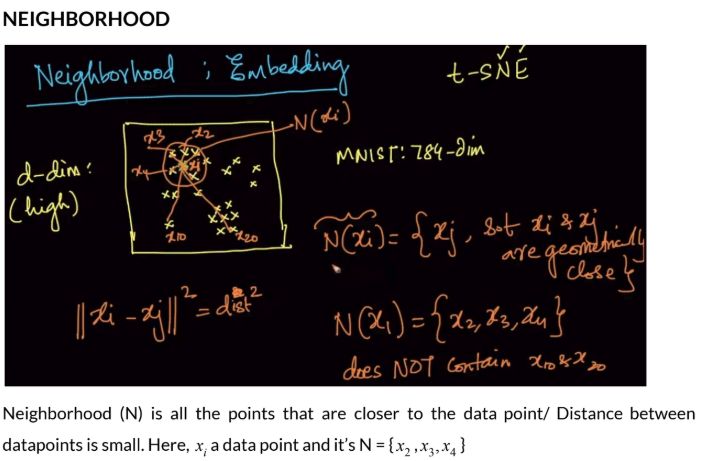 NEIGHBORHOOD
Neighborhood ; Embedding
t-SNE
N(xi)
x3 x2
x4 xi
MNIST: 784-dim
d-dim:
(high)
x10 x20
N(xi) = { xj, s.t xi & xj
are geometrically
close }
||xi - xj||² = dist²
N(x1) = { x2, x3, x4 }
does NOT contain x10 & x20
Neighborhood (N) is all the points that are closer to the data point/ Distance between
datapoints is small. Here, xi a data point and it's N = {x2 ,x3, x4 }